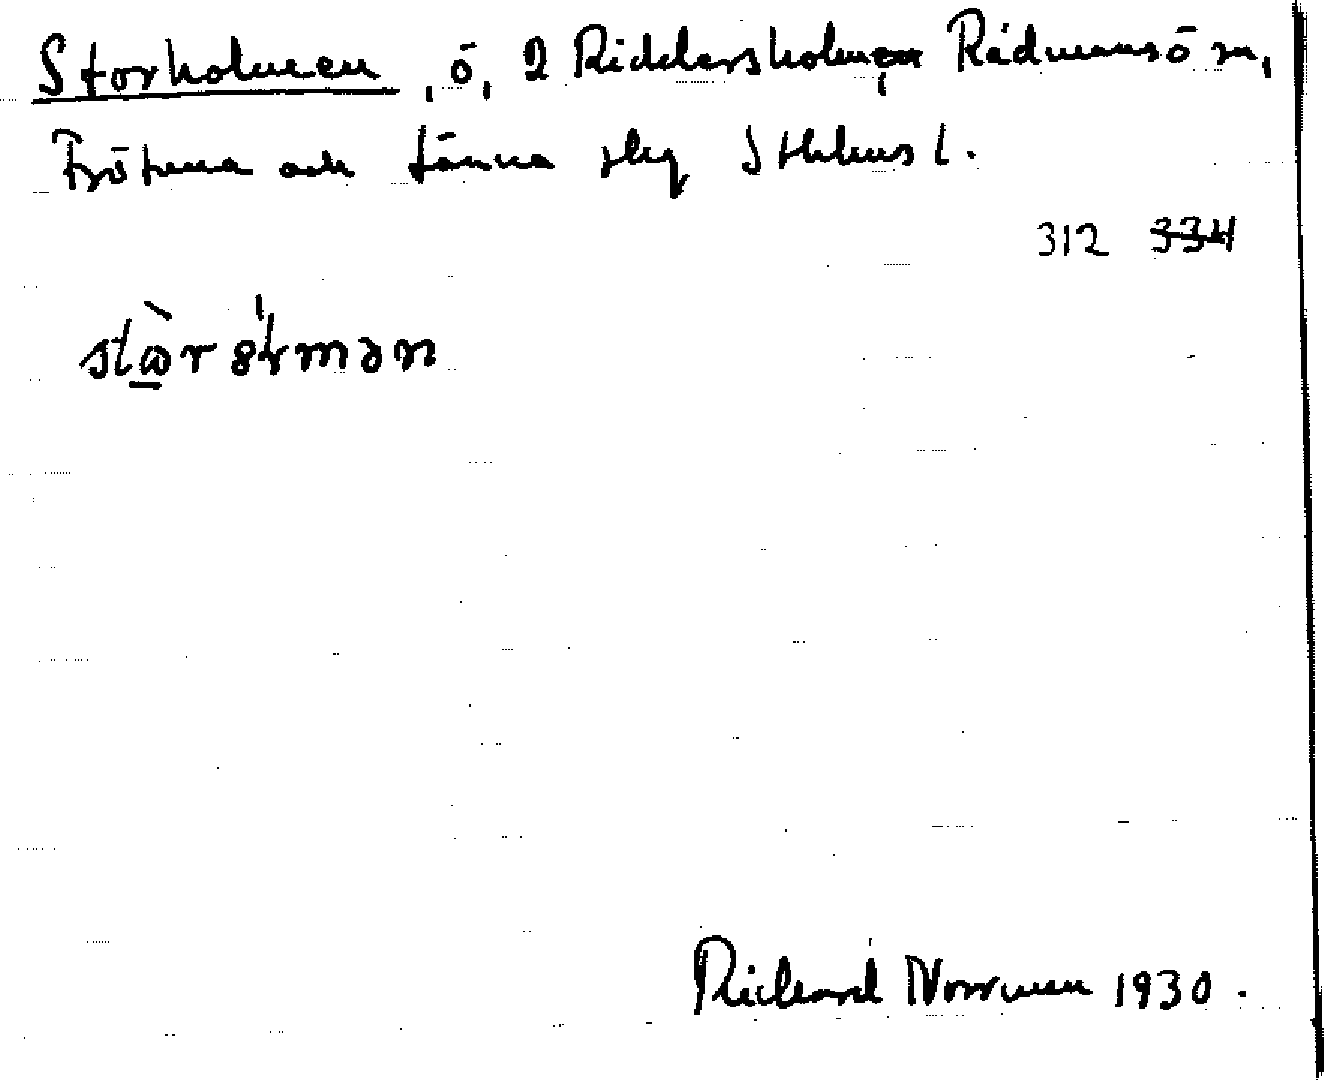 Storholmen, ö, 2 Riddersholmen Rådmansö sn,
Frötuna och Länna slg Sthlms l.
312 334
stωròlmən
Richard Norrman 1930.